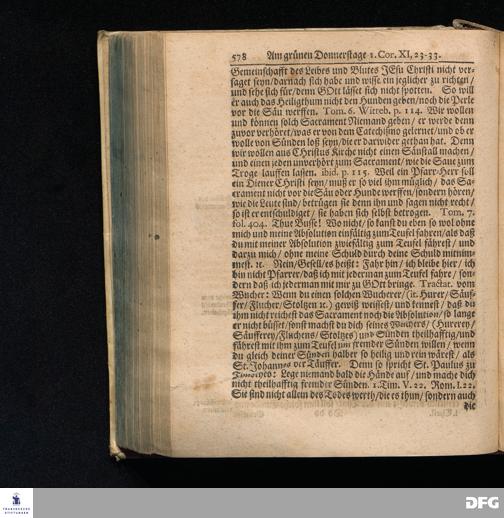 578 Am grünen Donnerstage 1. Cor. XI, 23-33.
Gemeinschafft des Leibes und Blutes JEsu Christi nicht ver-
saget seyn/darnach sich habe und wisse ein jeglicher zu richten/
und sehe sich für/denn GOtt lässet sich nicht spotten. So will
er auch das Heiligthum nicht den Hunden geben/noch die Perle
vor die Säu werffen. Tom. 6. Witteb. p. 114. Wir wollen
und können solch Sacrament Niemand geben/ er werde denn
zuvor verhöret/was er von dem Catechismo gelernet/und ob er
wolle von Sünden loß seyn/die er darwider gethan hat. Denn
wir wollen aus Christus Kirche nicht einen Säustall machen/
und einen jeden unverhört zum Sacrament/wie die Saue zum
Troge lauffen lassen. ibid. p. 115. Weil ein Pfarr-Herr soll
ein Diener Christi seyn/muß er so viel ihm müglich/ das Sa-
crament nicht vor die Säu oder Hunde werffen/sondern hören/
wie die Leute sind/betrügen sie denn ihn und sagen nicht recht/
so ist er entschuldiget/ sie haben sich selbst betrogen. Tom. 7.
fol. 404. Thue Busse! Wo nicht/so kanst du eben so wol ohne
mich und meine Absolution einfältig zum Teufel fahren/als daß
du mit meiner Absolution zwiefältig zum Teufel fährest/ und
darzu mich/ ohne meine Schuld durch deine Schuld mitnim-
mest. ꝛc. Nein/Gesell/es heist: Fahr hin/ ich bleibe hier/ ich
bin nicht Pfarrer/daß ich mit jederman zum Teufel fahre/ son-
dern daß ich jederman mit mir zu GOtt bringe. Tractat. vom
Wucher: Wenn du einen solchen Wucherer/(it. Hurer/Säuf-
fer/Flucher/Stoltzen ꝛc.) gewiß weissest/und kennest/ daß du
ihm nicht reichest das Sacrament noch die Absolution/so lange
er nicht büsset/sonst machst du dich seines Wuchers/ (Hurerey/
Säufferey/Fluchens/Stoltzes) und Sünden theilhafftig/und
fährest mit ihm zum Teufel um fremder Sünden willen/ wenn
du gleich deiner Sünden halber so heilig und rein wärest/ als
St. Johannes der Täuffer. Denn so spricht St. Paulus zu
Timotheo: Lege niemand bald die Hände auf/und mache dich
nicht theilhafftig fremder Sünden. 1. Tim. V. 22. Rom. I. 22.
Sie sind nicht allein des Todes werth/die es thun/sondern auch
die
FRANCKESCHE STIFTUNGEN
DFG